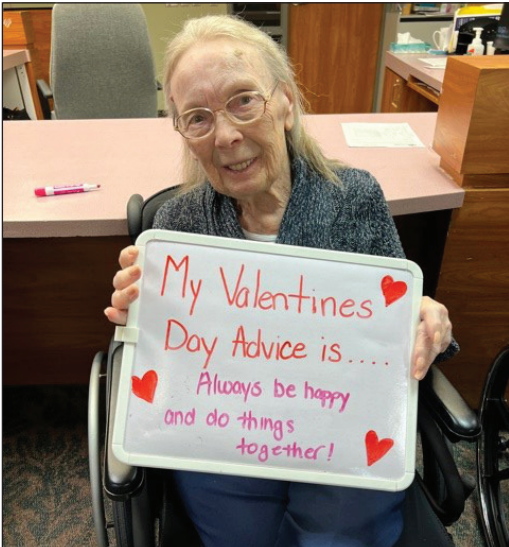 My Valentines
Day Advice is....
Always be happy
and do things
together!